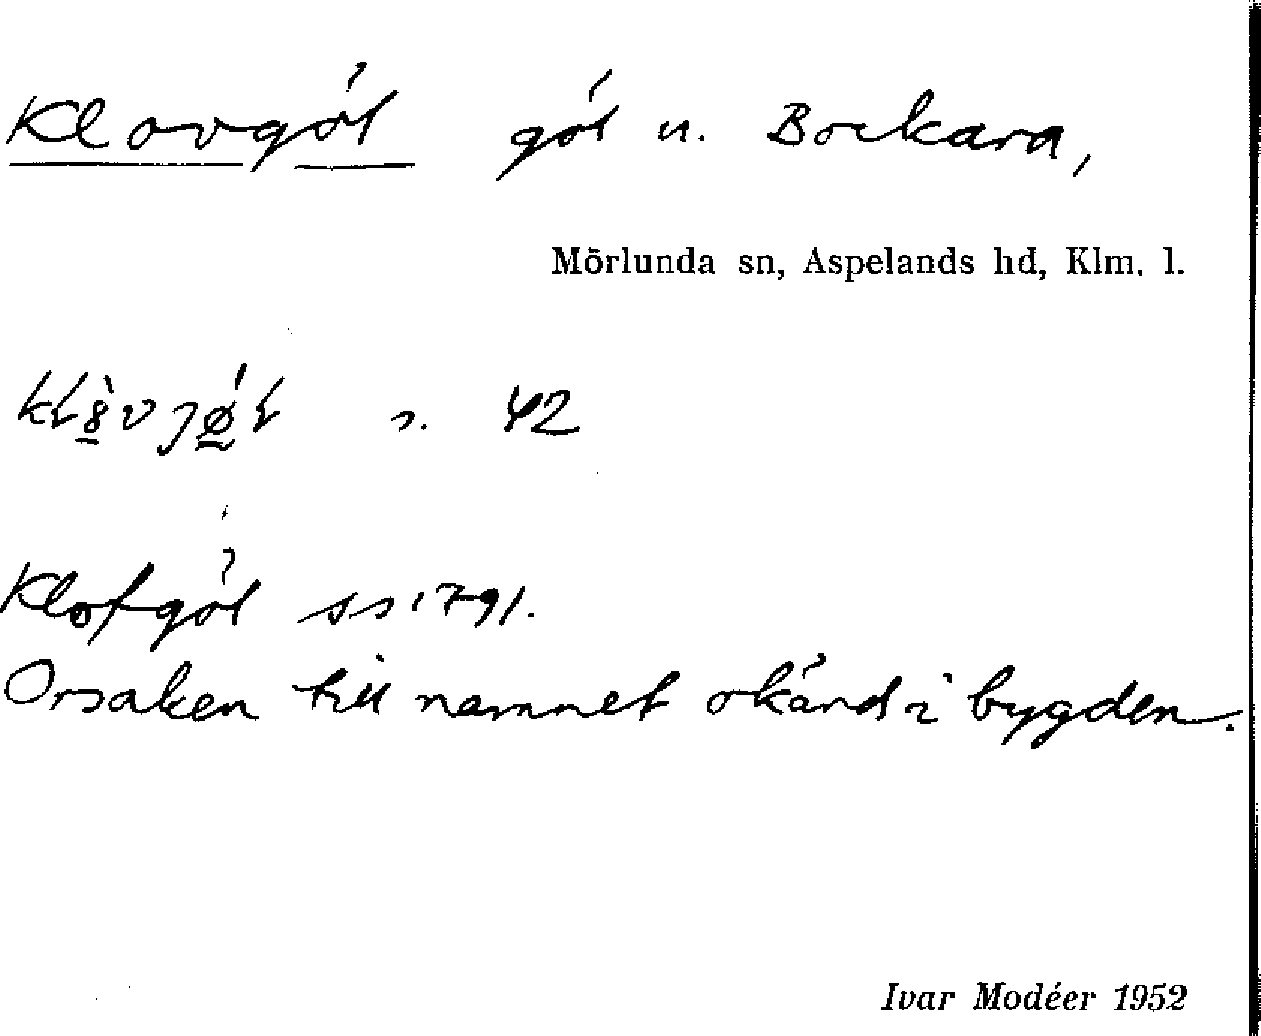 Klovgöl göl u. Bockara,
Mörlunda sn, Aspelands hd, Klm. l.
s. 42
Klofgöl ss 1791.
Orsaken till namnet okänd i bygden.
Ivar Modéer 1952